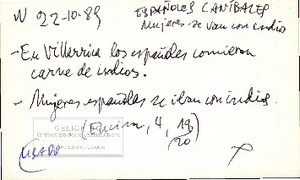 N 22-10-89 ESPAÑOLES CANÍBALES
Mujeres se van con indio
- En Villarrica los españoles comieron
carne de indios.
- Mujeres españoles se iban con indios.
(Encina, 4, 19
20)
USADO